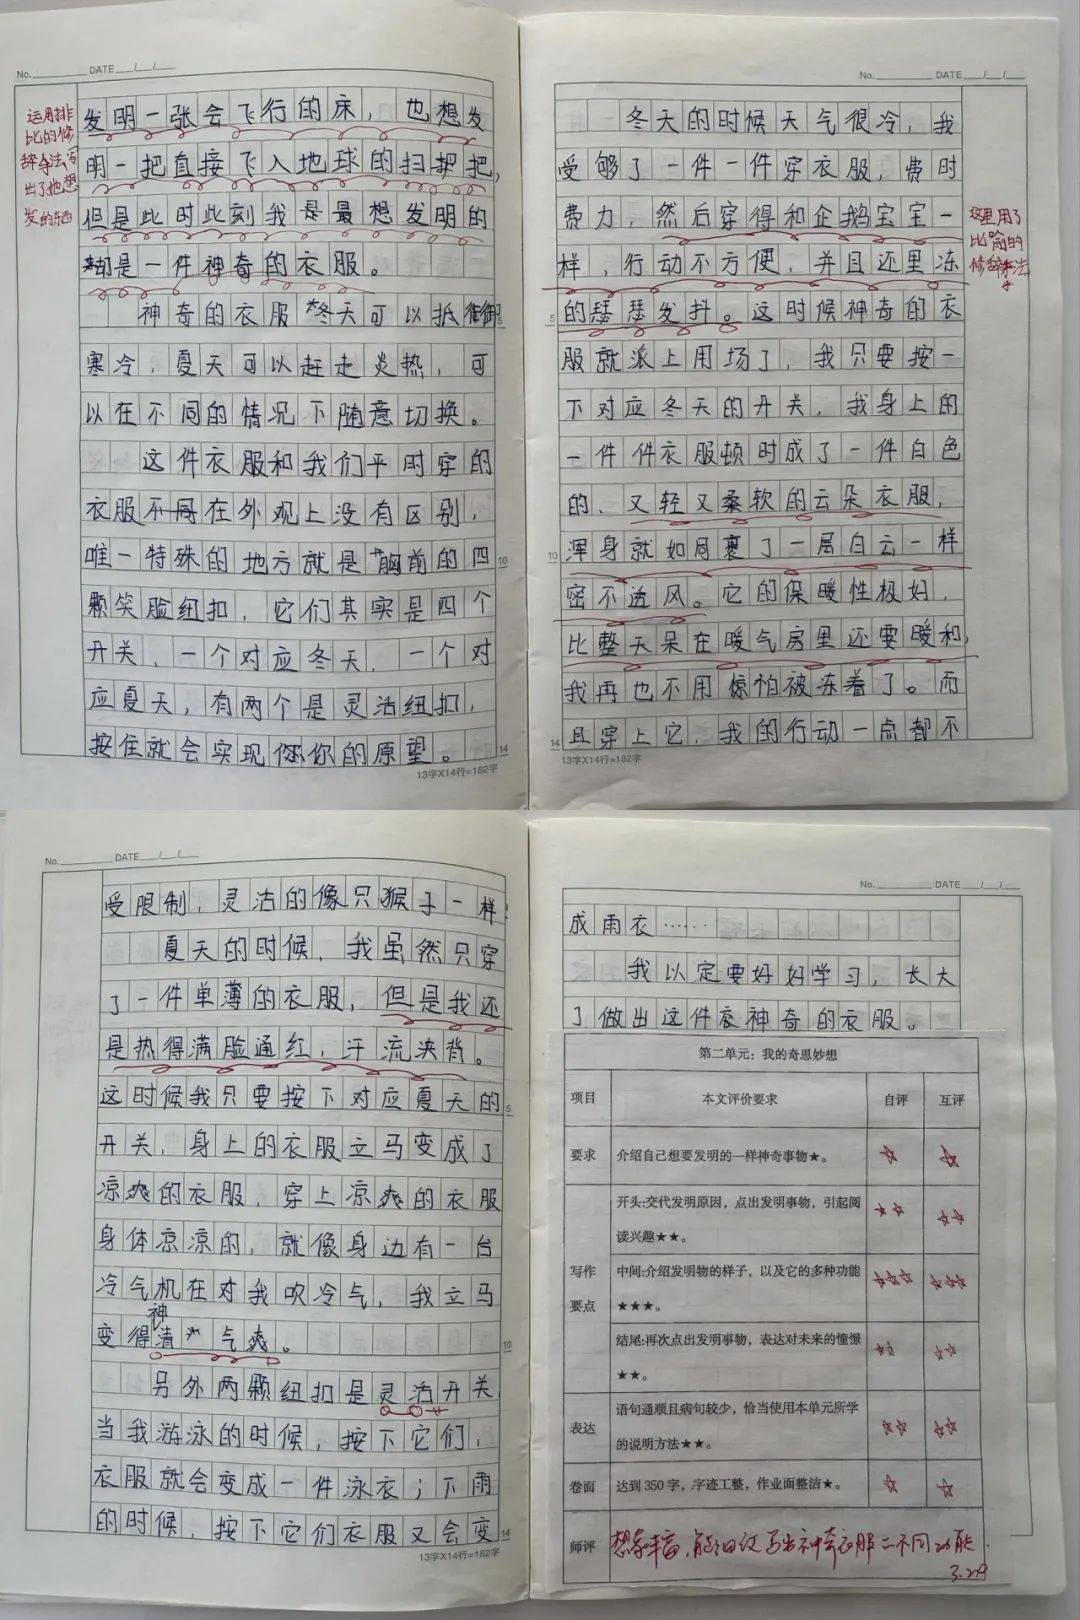 No.______ DATE__/__/__
运用排
比的修
辞手法写
出了她想
发的东西
发明一张会飞行的床，也想发
明一把直接飞入地球的扫把，
但是此时此刻我是最想发明的
却是一件神奇的衣服。
神奇的衣服冬天可以抵御
寒冷，夏天可以赶走炎热，可
以在不同的情况下随意切换。
这件衣服和我们平时穿的
衣服在外观上没有区别，
唯一特殊的地方就是胸前的四
颗笑脸纽扣，它们其实是四个
开关，一个对应冬天，一个对
应夏天，有两个是灵活纽扣，
按住就会实现你的原望。
5
10
14
13字X14行=182字
No.______ DATE__/__/__
冬天的时候天气很冷，我
受够了一件一件穿衣服，费时
费力，然后穿得和企鹅宝宝一
样，行动不方便，并且还里冻
的瑟瑟发抖。这时候神奇的衣
服就派上用场了，我只要按一
下对应冬天的开关，我身上的
一件件衣服顿时成了一件白色
的、又轻又柔软的云朵衣服，
浑身就如同裹了一层白云一样
密不透风。它的保暖性极好，
比整天呆在暖气房里还要暖和，
我再也不用惊怕被冻着了。而
且穿上它，我的行动一点都不
这里用了
比喻的
修辞手法
5
10
14
13字X14行=182字
No.______ DATE__/__/__
受限制，灵活的像只猴子一样！
夏天的时候，我虽然只穿
了一件单薄的衣服，但是我还
是热得满脸通红，汗流浃背。
这时候我只要按下对应夏天的
开关，身上的衣服立马变成了
凉爽的衣服，穿上凉爽的衣服
身体凉凉的，就像身边有一台
冷气机在对我吹冷气，我立马
变得神清气爽。
另外两颗纽扣是灵活开关，
当我游泳的时候，按下它们，
衣服就会变成一件泳衣；下雨
的时候，按下它们衣服又会变
5
10
14
13字X14行=182字
No.______ DATE__/__/__
成雨衣……
我以定要好好学习，长大
了做出这件神奇的衣服。
第二单元：我的奇思妙想
项目 本文评价要求 自评 互评
要求 介绍自己想要发明的一样神奇事物★。 ☆ ☆
开头:交代发明原因，点出发明事物，引起阅
读兴趣★★。 ☆☆ ☆☆
写作 中间:介绍发明物的样子，以及它的多种功能
要点 ★★★。 ☆☆☆ ☆☆☆
结尾:再次点出发明事物，表达对未来的憧憬
★★。 ☆☆ ☆☆
语句通顺且病句较少，恰当使用本单元所学
表达 的说明方法★★。 ☆☆ ☆☆
卷面 达到 350 字，字迹工整，作业面整洁★。 ☆ ☆
师评 想象丰富，能细致写出神奇衣服的不同功能。
3.29